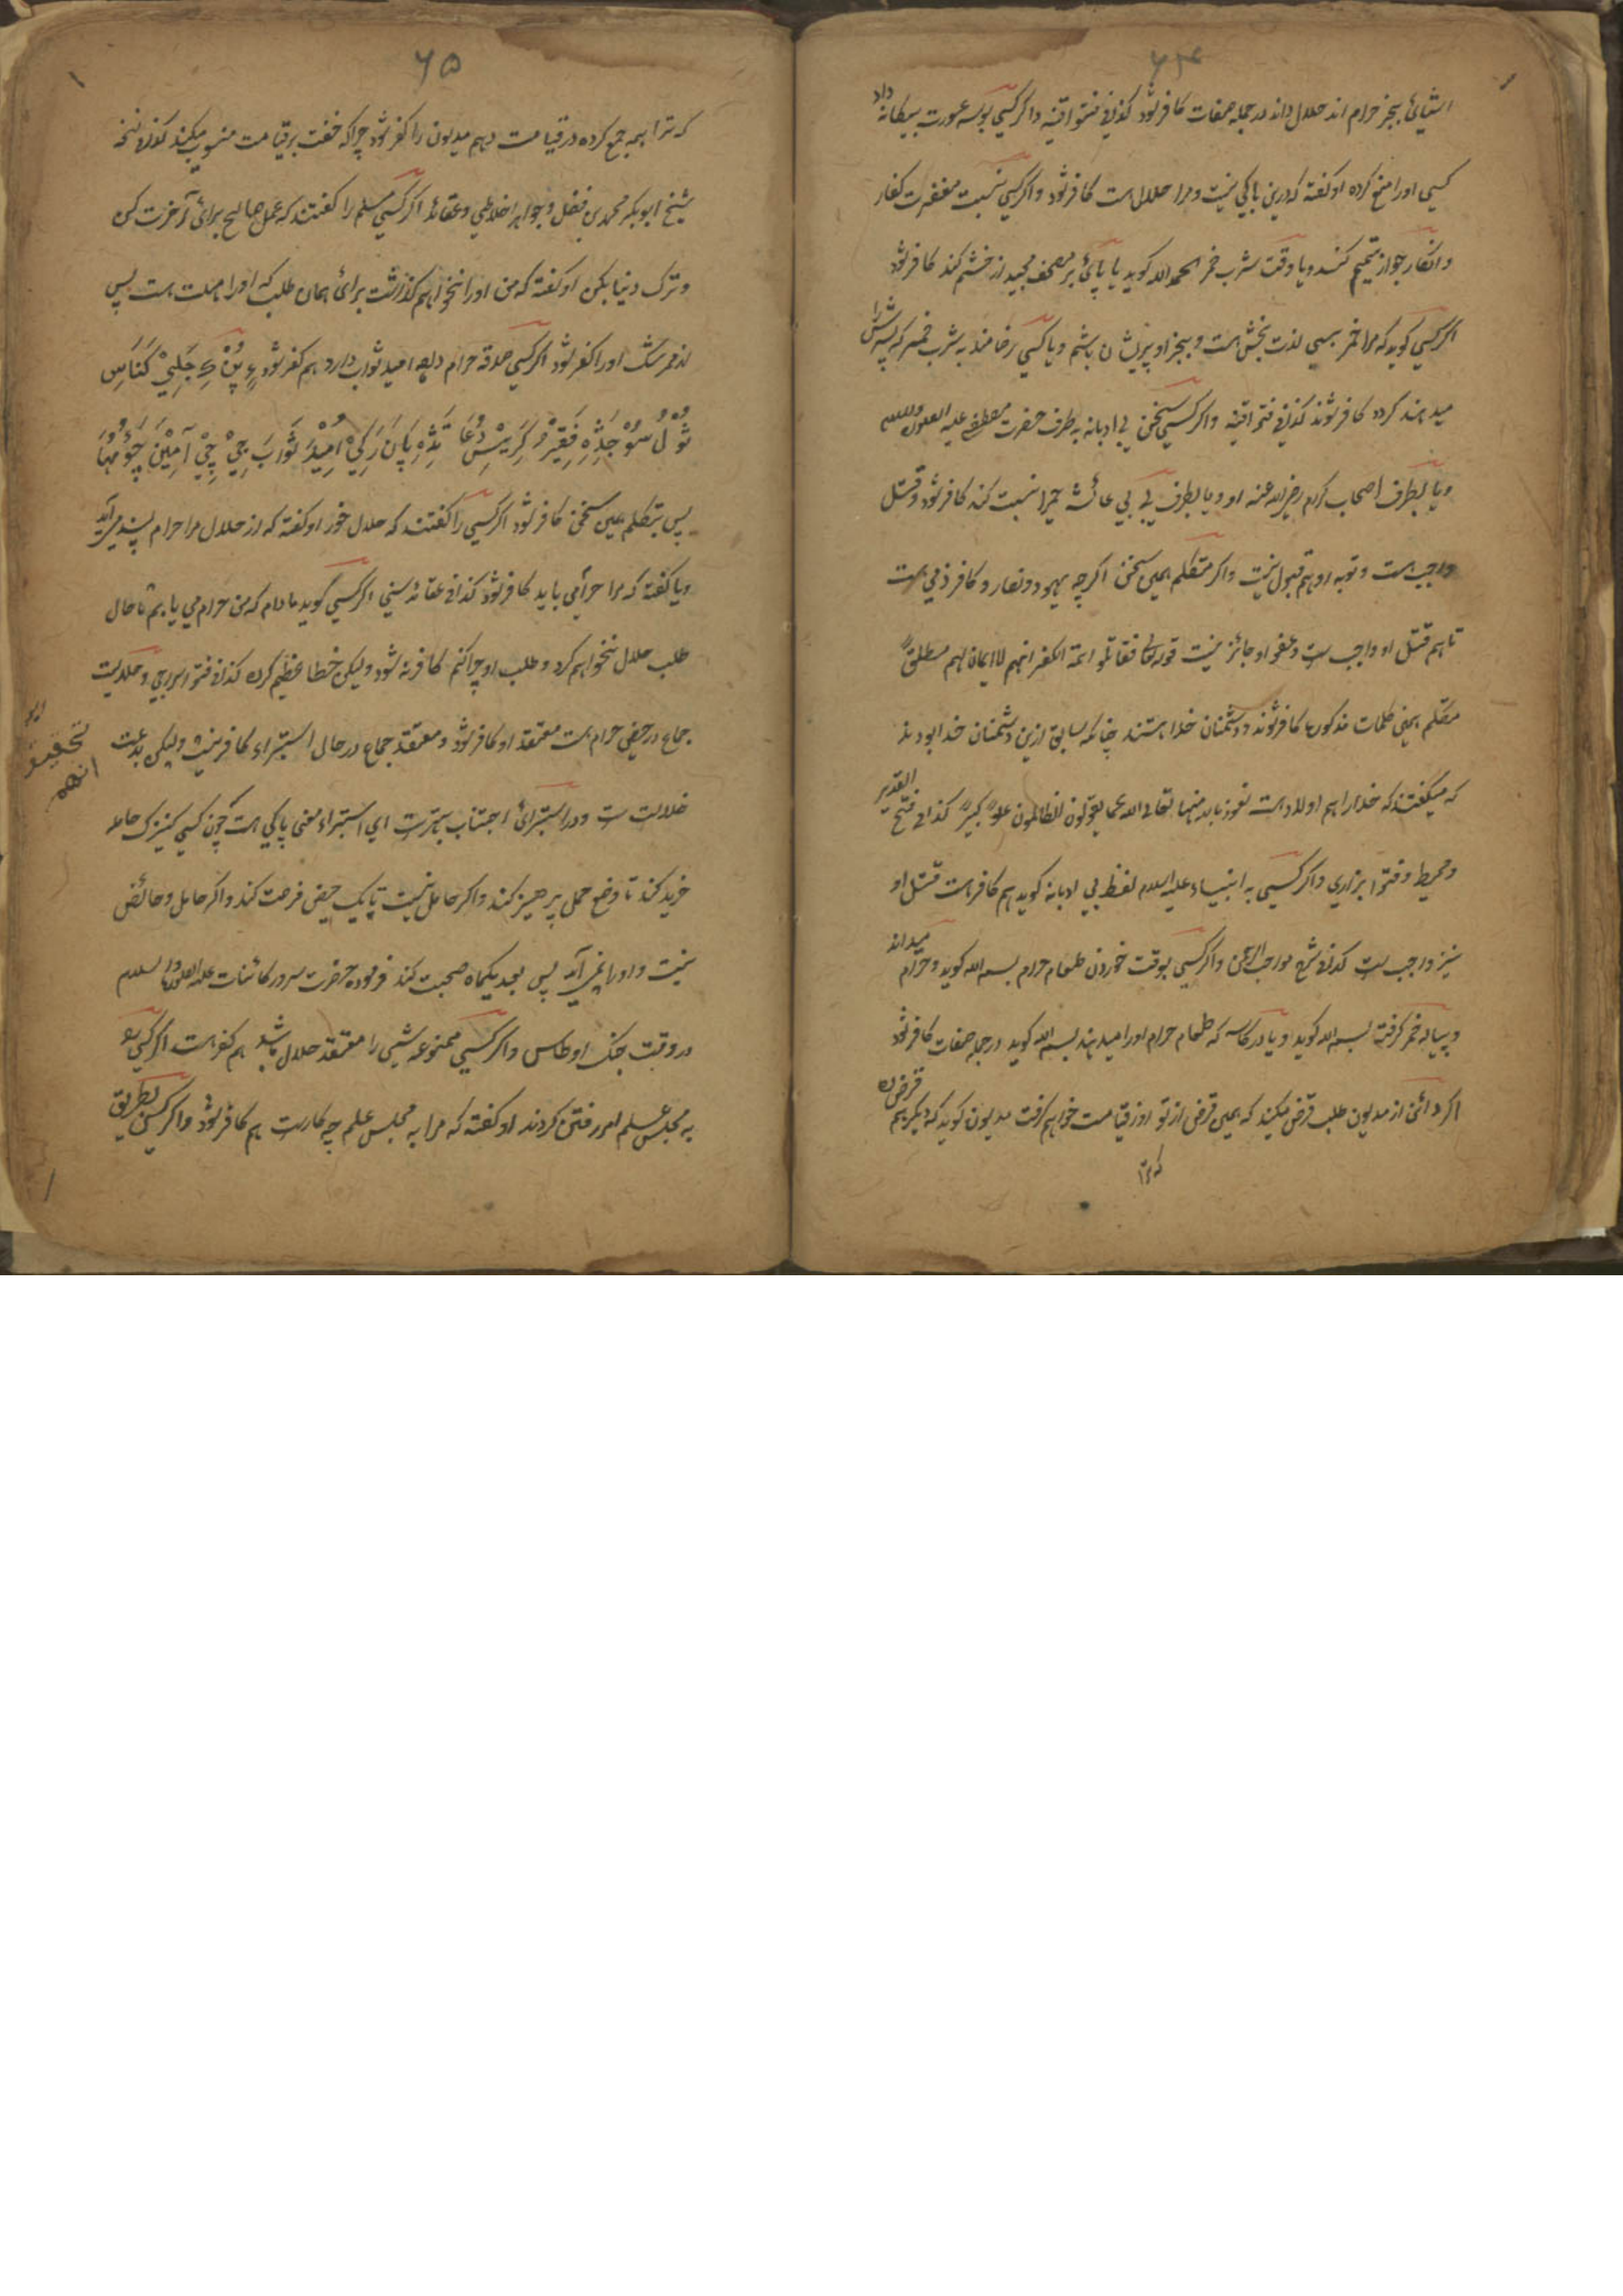 ۶۴
اشیائ بجز حرام اند حلال داند در جمله صفات کافر شود کذا فی فتوا قنیه و اگر کسی بوسه عورت بیگانه داد
کسی اورا منع کرده او گفته که درین باکی نیست و مرا حلال است کافر شود و اگر کسی نسبت مغفرت کفار
و انکار جواز تیمم کند و یا وقت شرب خمر الحمد الله کوید یا پائ بر مصحف مجید از خشم کند کافر شود
اگر کسی کوید که مرا خمر بسی لذت بخش است و بجز او پریشان باشم و یا کسی رضامند به شرب خمر که پسرش را
میدهند گردد کافر شوند کذا فی فتوا قنیه و اگر کسی سخن بی ادبانه به طرف حضرت مصطفی علیه الصلوة والسلام
و یا بطرف اصحاب کرام رضی الله عنه او و یا بطرف بی بی عائشه حمیرا نسبت کند کافر شود و قتل
واجب است و توبه او هم قبول نیست و اگر متکلم همین سخن اگرچه یهود و نصار و کافر ذمی است
تا هم قتل او واجب ست و عفو او جائز نیست قوله تعالی فقاتلوا ائمة الکفر انهم لا ایمان لهم مطلقاً
متکلم همین کلمات مذکورها کافر شوند و دشمنان خدا هستند چنانکه سابق ازین دشمنان خدا بودند
که میگفتند که خدا را هم اولاد است نعوذ بالله منها تعالی الله عما یقولون الظالمون علواً کبیراً کذا فی فتح القدیر
و محیط و فتوا بزازی و اگر کسی به انبیاء علیه السلام لفظ بی ادبانه کوید هم کافر است قتل او
نیز واجب ست کذا فی شرح و اگر کسی بوقت خوردن طعام حرام بسم الله کوید و حرام میداند
و پیاله خمر گرفته بسم الله کوید و یا در کاسه که طعام حرام اورا میدهند بسم الله کوید در جمله صفات کافر شود
اگر دائن از مدیون طلب قرض میکند که همین قرض از تو روز قیامت خواهم گرفت مدیون کوید که دیگر هم قرض ده
که ترا
۶۵
که ترا همه جمع کرده در قیامت دهم مدیون را کفر شود چرا که خفت بر قیامت منسوب میکند کذا فی نسخه
شیخ ابوبکر محمد بن فضل و جواهر اخلاطی و عقائد اگر کسی مسلم را گفتند که عمل صالح برائ آخرت کن
و ترک دنیا بکن او گفته که من اورا نخواهم گذاشت برائ همان طلب که اورا مهلت است پس
اورا کفر شود اگر کسی صدقه حرام دهد امید ثواب دارد هم کفر شود
فَقِیْرُ دُعَا اُمِیْدَ ثَوَابَ آمِیْنَ
پس بتکلم عین سخن کافر شود اگر کسی را گفتند که حلال خور او گفته که از حلال مرا حرام پسند می آید
و یا گفته که مرا حرامی باید کافر شود کذا فی عقائد سنی اگر کسی گوید مادام که من حرام می یابم تا حال
طلب حلال نخواهم کرد و طلب او چرا کنم کافر نه شود ولیکن خطا عظیم کرده کذا فی فتوا
جماع در حیض حرام است معتقد او کافر شود و معتقد جماع در حال استبراء کافر نیست ولیکن بدعت
ضلالت ست و در استبرائ اجتناب بهتر ست ای استبراء معنی پاکی است چون کسی کنیزک حامله
خرید کند تا وضع حمل پرهیز کند و اگر حامل نیست تا یک حیض فرصت کند و اگر حامل و حائض
نیست و اورا نمی آید پس بعد یکماه صحبت کند فرموده حضرت سرور کائنات علیه الصلوة والسلام
در وقت جنگ اوطاس و اگر کسی ممنوعه شیئ را معتقد حلال باشد هم کفر است اگر کسی
به مجلس علم امر رفتن کردند او گفته که مرا به مجلس علم چه کار ست هم کافر شود و اگر کسی بطریق
تحقیق
انهم